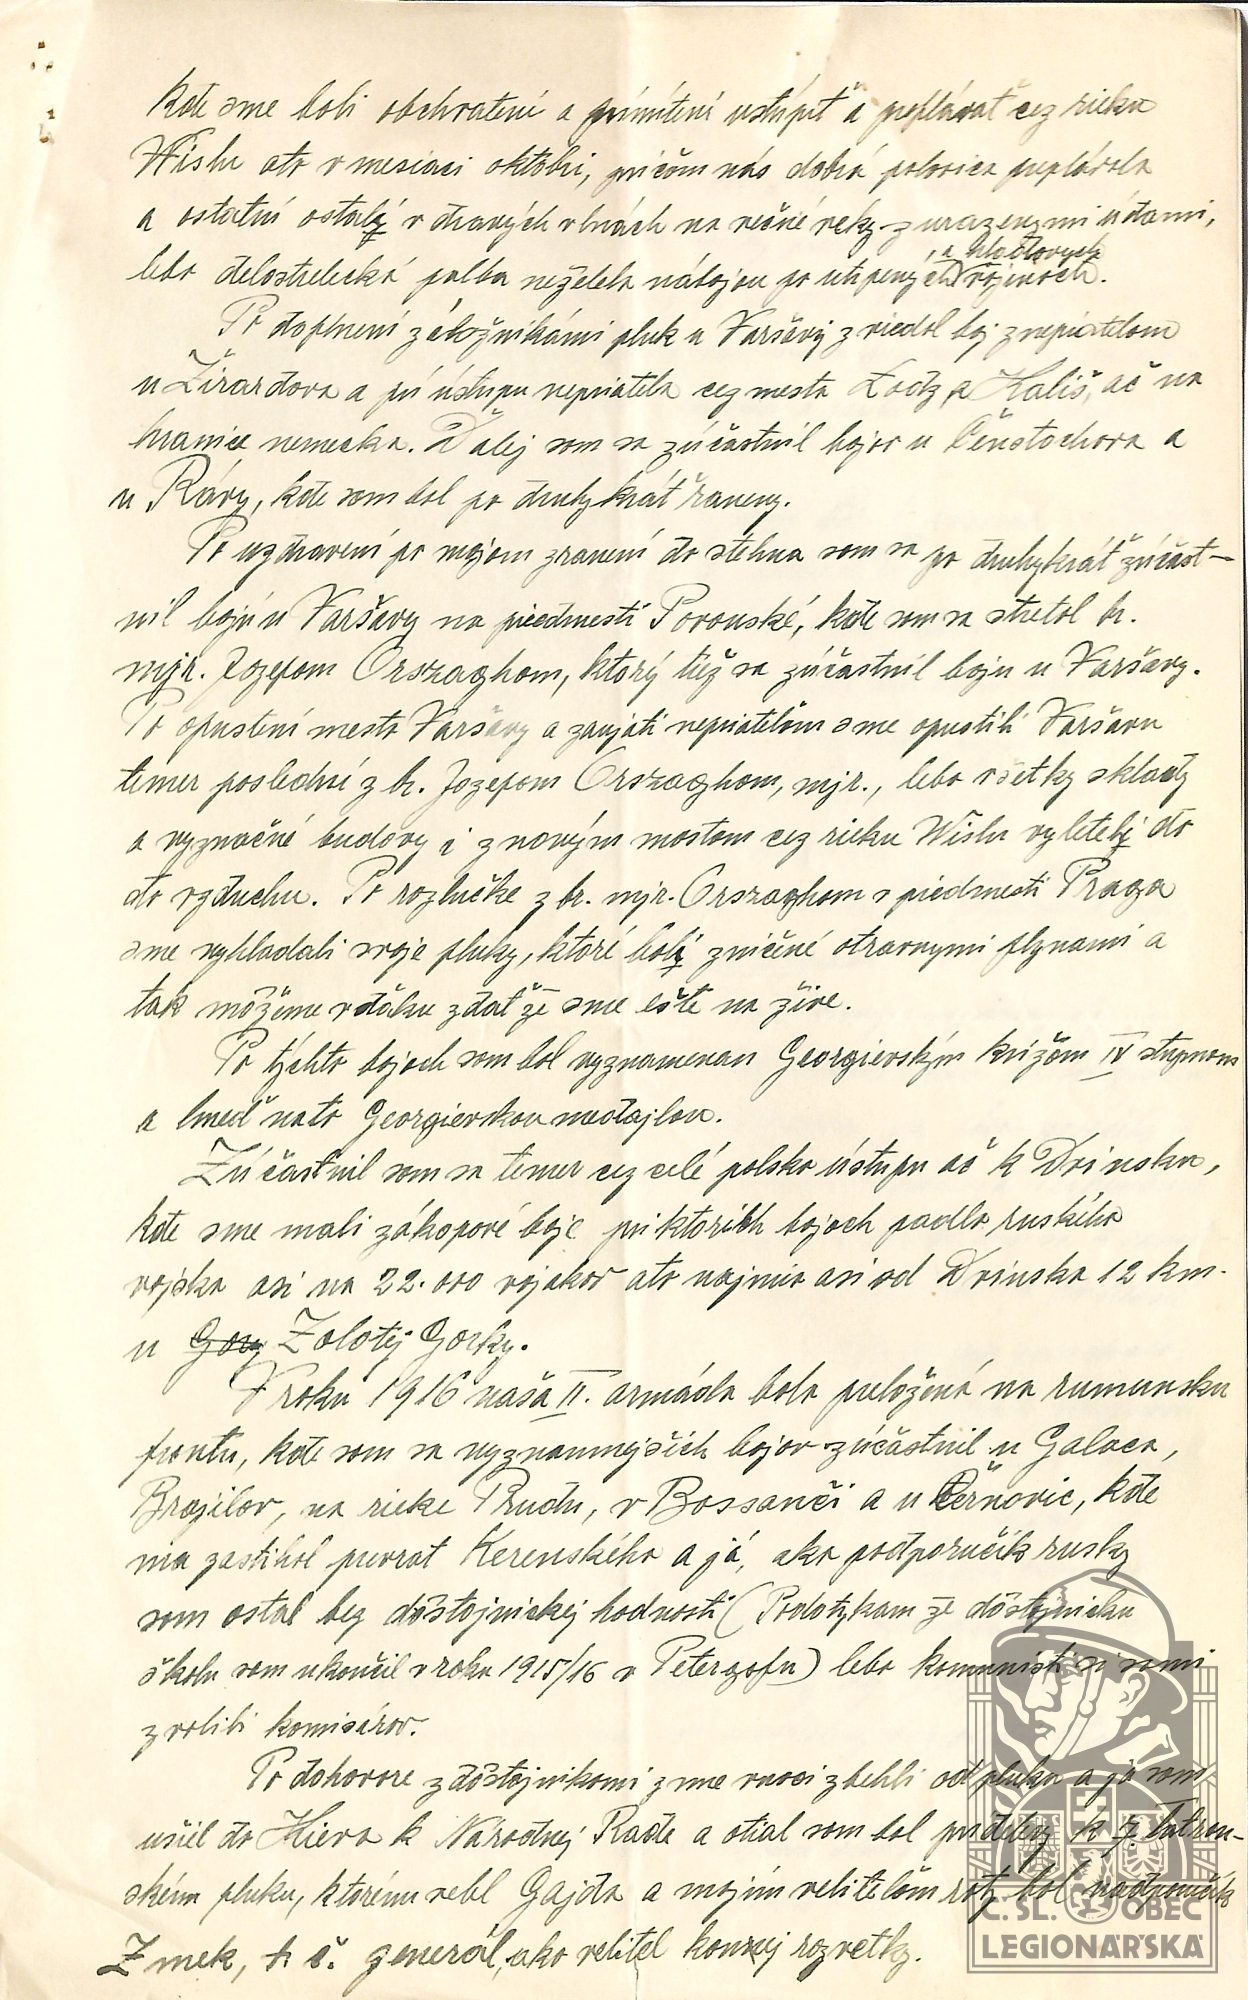 kde sme boli obchvatení a prinútení ustúpiť a preplávať cez rieku
Wislu ato v mesiaci októbri, pričom nás dobrá polovica preplávala
a ostatní ostali v dravých vlnách na večné veky z urazenymi údami,
lebo delostrelecká paľba neželela nábojou po utipených a hločtových rojnicách.
Po doplnení záložníkámi pluk u Varšavy zviedol boj z nepriatelom
u Žirardova a pri ústupu nepriatela cez mesta Lodz a Kališ, ač na
hranice nemecka. Ďalej som sa zúčastnil bojov u Čenstochova a
u Rávy, kde som bol po druhykrát raneny.
Po uzdravení po mojom zranení do stehna som sa po druhykrát zúčast-
nil boju u Varšavy na predmestí Povonské, kde som sa stretol br.
mjr. Jozefom Orszaghom, ktorý tiež sa zúčastnil boju u Varšavy.
Po opustení mesta Varšavy a zaujatí nepriatelom sme opustili Varšavu
temer poslední z br. Jozefom Orszaghom, mjr., lebo všetky sklady
a vyznačné budovy i z novým mostom cez rieku Wislu vyleteli do
do vzduchu. Po rozlučke z br. mjr. Orszaghom v predmestí Praga
sme vyhladali svoje pluky, ktoré boly zničené otravnymi plynami a
tak môžeme vďaku vzdať že sme ešte na žive.
Po týchto bojoch som bol vyznamenan Georgievským krížom IV stupnom
a hneď nato Georgievskou medajlou.
Zúčastnil som sa temer cez celé polsko ústupu ač k Dvinsku,
kde sme mali zákopové boje pri ktorých bojoch padlo ruského
vojska asi na 22.000 vojakov ato najmä asi od Dvinska 12 km.
u Gory Zolotej Gorky.
V roku 1916 naša II. armáda bola preložená na rumunsku
frontu, kde som sa vyznamnejších bojov zúčastnil u Galaca,
Brajilov, na rieke Prudu, v Bossanči a u Černovic, kde
ma zastihol prevrat Kerenského a já, ako podporučík rusky
som ostal bez dôstojnickej hodnosti (Podotykam že dôstojnicku
školu som ukončil v roku 1915/16 v Petergofu) lebo komunisti si sami
zvolili komisárov.
Po dohovore z dôstojnikomi zme vnoci zbehli od pluku a já som
ušiel do Kieva k Národnej Rade a otial som bol prideleny k 7. tatran-
skému pluku, ktorému velel Gajda a mojím velitelom roty bol nadporučík
Zmek, t. č. generál, ako velitel konnej rozvetky.
Č. SL. OBEC
LEGIONÁŘSKÁ